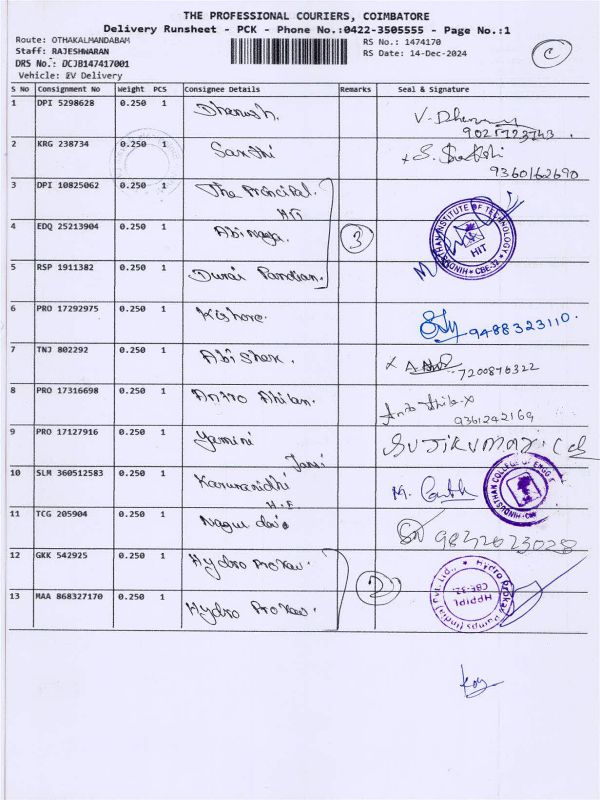 THE PROFESSIONAL COURIERS, COIMBATORE
Delivery Runsheet - PCK - Phone No.:0422-3505555 - Page No.:1
Route: OTHAKALMANDABAM
RS No.: 1474170
Staff: RAJESHWARAN
RS Date: 14-Dec-2024
DRS No.: DCJB147417001
Vehicle: EV Delivery
C
S No Consignment No Weight PCS Consignee Details Remarks Seal & Signature
1 DPI 5298628 0.250 1 Dhanush. V. 9025723743.
2 KRG 238734 0.250 1 Sandhi x S. 9360162690
3 DPI 10825062 0.250 1 The Principal.
Hit
4 EDQ 25213904 0.250 1 Abinaya. 3
HINDUSTHAN INSTITUTE OF TECHNOLOGY * CBE-32 * HIT
5 RSP 1911382 0.250 1 Durai Pandian.
6 PRO 17292975 0.250 1 Kishore. 9488323110.
7 TNJ 802292 0.250 1 Abishek. x 7200876322
8 PRO 17316698 0.250 1 Antro Ahilan. 9361242169
9 PRO 17127916 0.250 1 Yamini
10 SLM 360512583 0.250 1 Karunanidhi M.
HINDUSTHAN COLLEGE OF ENGG
11 TCG 205904 0.250 1 Nagur 
12 GKK 542925 0.250 1 Hydro Prokav.
2
Hydro Prokav Pumps (India) Pvt. Ltd., * CBE-32. HPPIPL
13 MAA 868327170 0.250 1 Hydro Prokav.